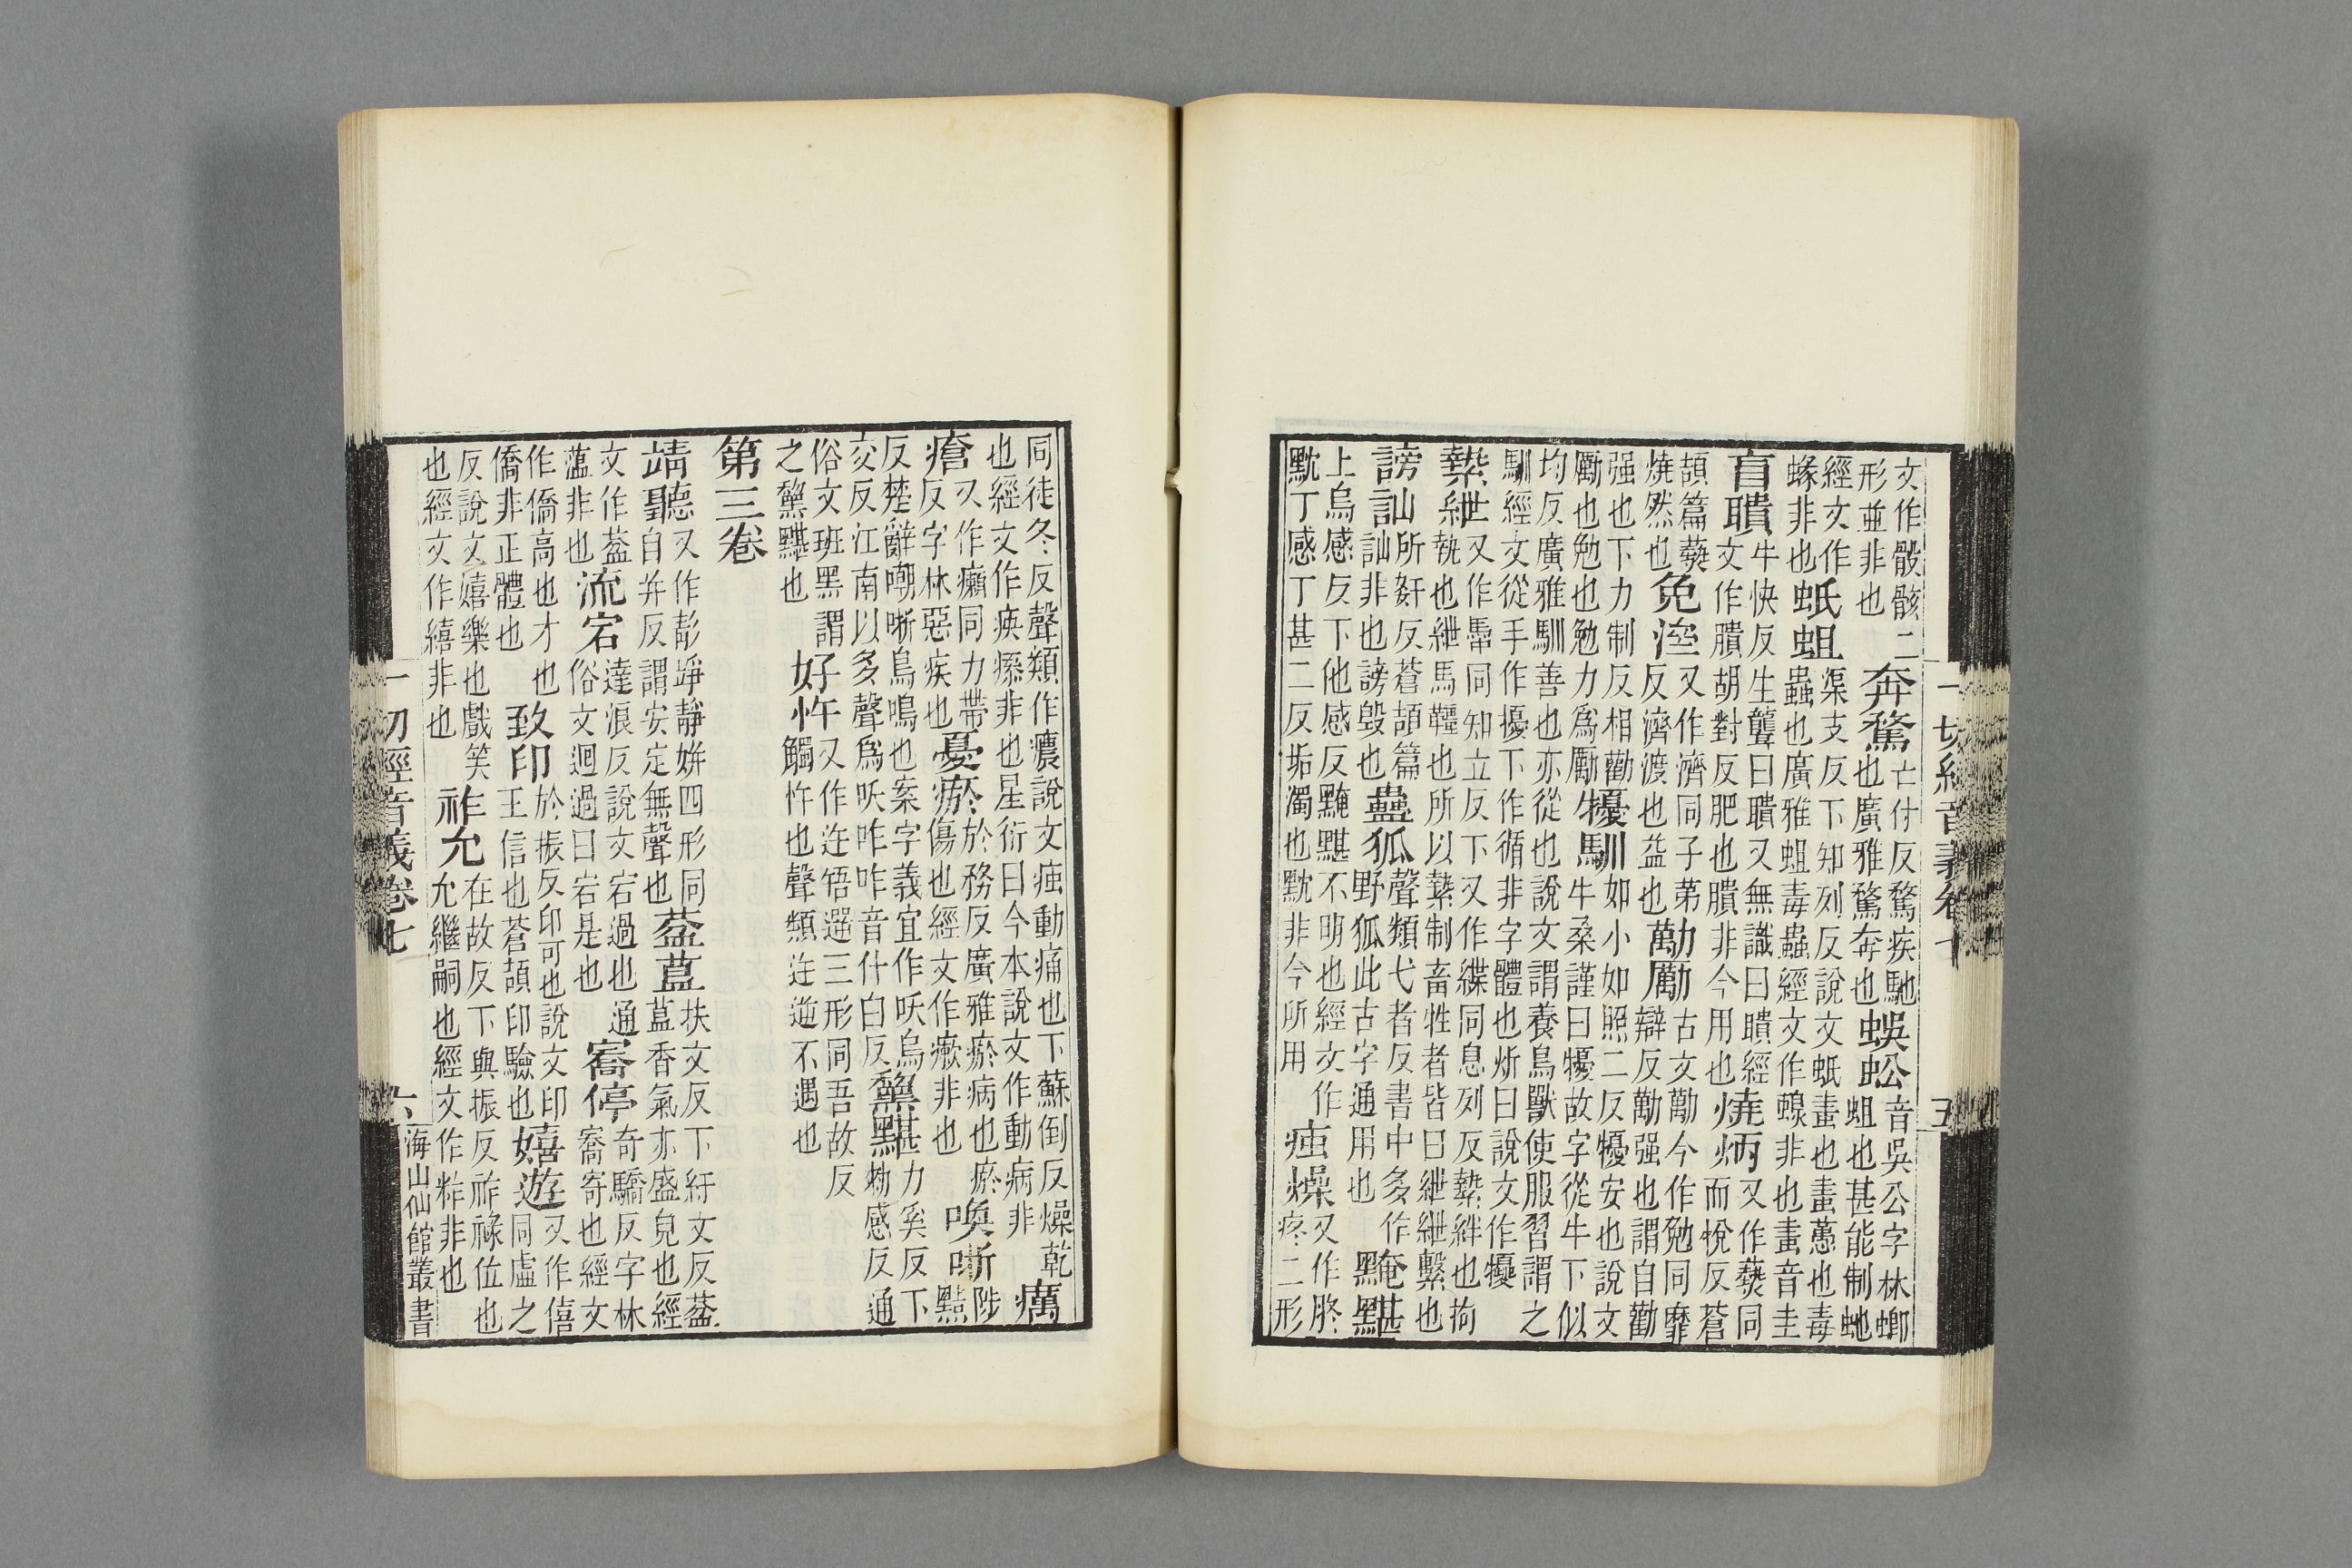 文作骰骸二形並非也奔騖亡付反騖疾馳也廣雅騖奔也蜈蚣音吳公字林蝍蛆也甚能制虵
經文作蝝非也蚔蛆渠支反下知列反說文蚔畫也畫蠆也毒蟲也廣雅蛆毒蟲經文作蝝非也畫音圭
盲聵牛快反生聾曰聵又無識曰瞶經文作膭胡對反肥也膭非今用也燒炳又作爇同而悅反蒼
頡篇爇燒然也免又作濟同子第反濟渡也益也勱厲古文勱今作勉同靡辯反勱强也謂自勸
强也下力制反相勸勵也勉也勉力爲勵㹛馴如小如照二反㹛安也說文牛柔謹曰㹛故字從牛下似
均反廣雅馴善也亦從也說文謂養鳥獸使服習謂之馴經文從手作擾下作循非字體也炘曰說文作㹛
縶紲又作馽同知立反下又作緤同息列反縶絆也拘執也紲馬韁也所以縶制畜牲者皆曰紲紲繫也
謗訕所姧反蒼頡篇訕非也謗毀也蠱狐聲類弋者反書中多作野狐此古字通用也黤黮
上烏感反下他感反黤黮不明也經文作黕丁感丁甚二反垢濁也黕非今所用痋燥又作胮疼二形
一切經音義卷七 五
同徒冬反聲類作癑說文痋動痛也下蘇倒反燥乾也經文作非也星衍曰今本說文作動病非癘
瘡又作癩同力帶反字林惡疾也憂瘀於務反廣雅瘀病也瘀傷也經文作瘷非也喚哳陟黠
反楚辭嘲哳鳥鳴也案字義宜作吺烏交反江南以多聲爲吺咋咋音仕白反黧黮力奚反下勑感反通
俗文班黑謂之黧黮也好忤又作迕啎遻三形同吾故反觸忤也聲類迕逆不遇也
第三卷
靖聽又作彭竫靜妌四形同自井反謂安定無聲也葐蒀扶文反下紆文反葐蒀香氣亦盛皃也經
文作葢薀非也流宕達浪反說文宕過也通俗文迥過曰宕是也㝯停奇驕反字林㝯寄也經文
作僑高也才也僑非正體也致印於振反印可也說文印王信也蒼頡印驗也嬉遊又作僖同虛之
反說文嬉樂也戲笑也經文作繥非也祚允在故反下與振反祚祿位也允繼嗣也經文作粋非也
一切經音義卷七 六 海山仙館叢書